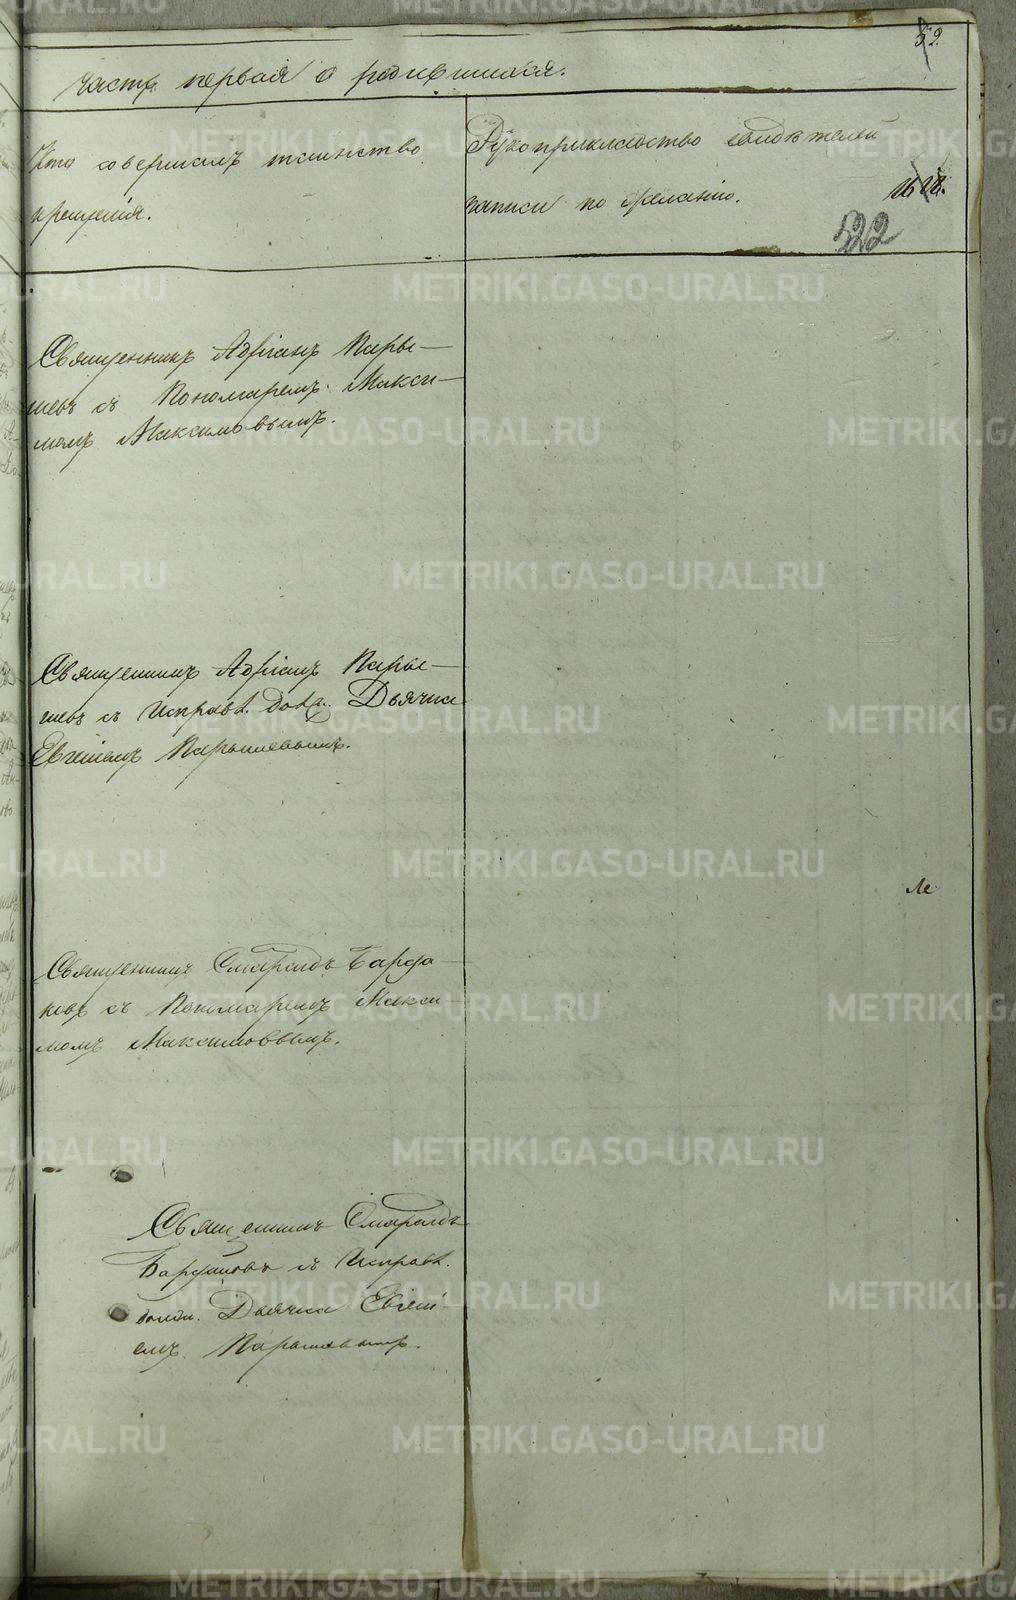 52.
часть первая о родившихся.
Кто совершалъ таинство
крещенія.
Рукоприкладство свидѣтелей
записи по желанію.
522
Священникъ Адріанъ Пары-
шевъ съ Пономаремъ Макси-
момъ Максимовымъ.
Священникъ Адріанъ Пары-
шевъ съ Исправл. долж. Дьячка
Евгеніемъ Парышевымъ.
Священникъ Смарагдъ Барда-
ковъ съ Пономаремъ Макси-
момъ Максимовымъ.
Священникъ Смарагдъ
Бардаковъ съ Исправл.
должн. Дьячка Евгені-
емъ Парышевымъ.
METRIKI.GASO-URAL.RU